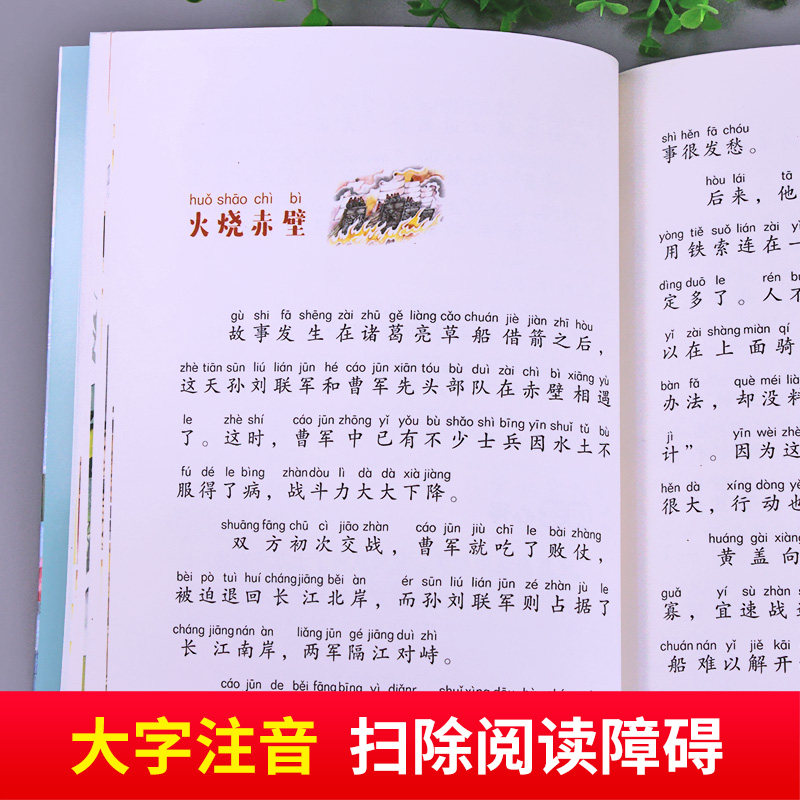 huǒ shāo chì bì
火烧赤壁
gù shi fā shēng zài zhū gě liàng cǎo chuán jiè jiàn zhī hòu
故事发生在诸葛亮草船借箭之后，
zhè tiān sūn liú lián jūn hé cáo jūn xiān tóu bù duì zài chì bì xiāng yù
这天孙刘联军和曹军先头部队在赤壁相遇
le zhè shí cáo jūn zhōng yǐ yǒu bù shǎo shì bīng yīn shuǐ tǔ bù
了。这时，曹军中已有不少士兵因水土不
fú dé le bìng zhàn dòu lì dà dà xià jiàng
服得了病，战斗力大大下降。
shuāng fāng chū cì jiāo zhàn cáo jūn jiù chī le bài zhàng
双方初次交战，曹军就吃了败仗，
bèi pò tuì huí cháng jiāng běi àn ér sūn liú lián jūn zé zhàn jù le
被迫退回长江北岸，而孙刘联军则占据了
cháng jiāng nán àn liǎng jūn gé jiāng duì zhì
长江南岸，两军隔江对峙。
cáo jūn de běi fāng bīng
shì hěn fā chóu
事很发愁。
hòu lái tā
后来，他
yòng tiě suǒ lián zài yì
用铁索连在一
dìng duō le rén bú
定多了。人不
yǐ zài shàng miàn qí
以在上面骑
bàn fǎ què méi liào
办法，却没料
jì yīn wèi zhè
计”。因为这
hěn dà xíng dòng yě
很大，行动也
huáng gài xiàng
黄盖向
guǎ yí sù zhàn
寡，宜速战
chuán nán yǐ jiě kāi
船难以解开
大字注音 扫除阅读障碍